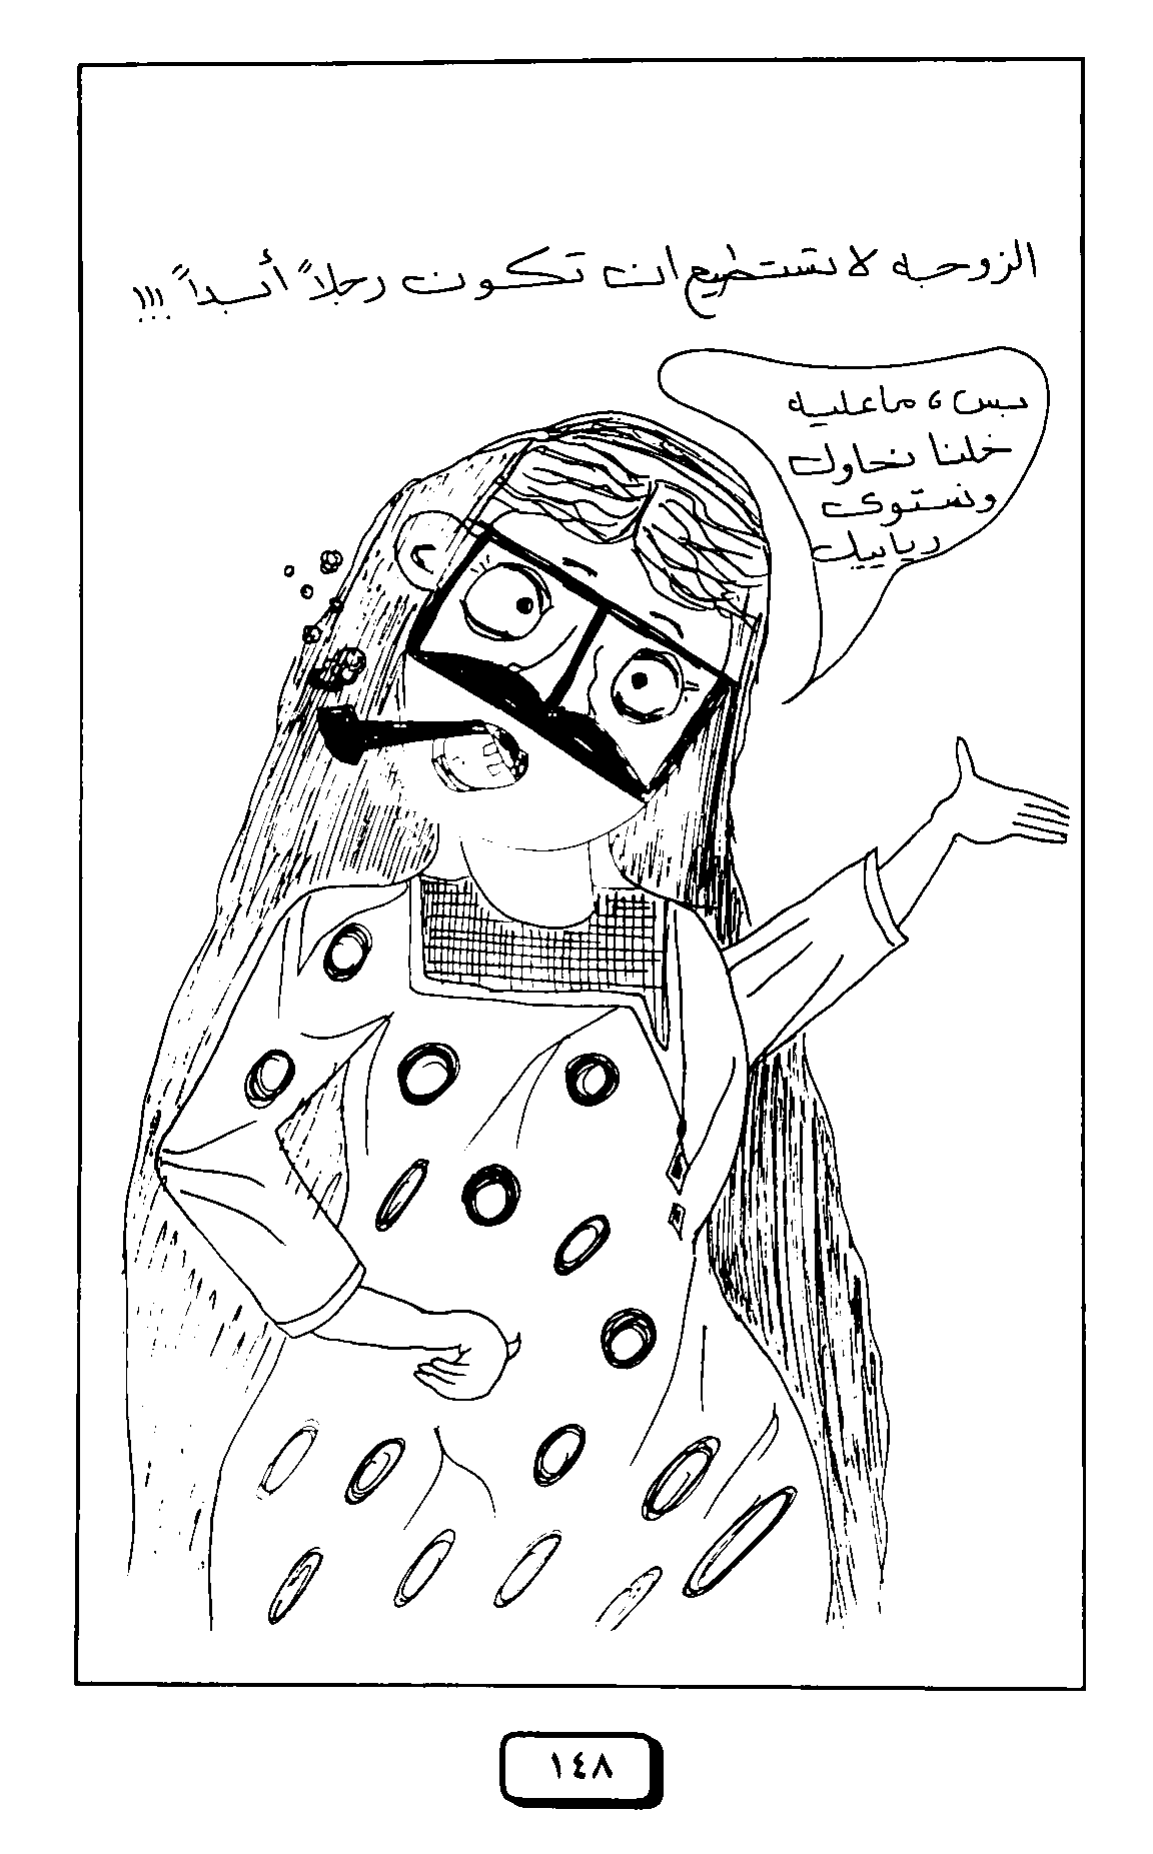 الزوجه لا تستطيع ان تكون رجلاً أبداً !!!
بس، ماعليه
خلنا نحاول
ونستوى
رياييل
١٤٨